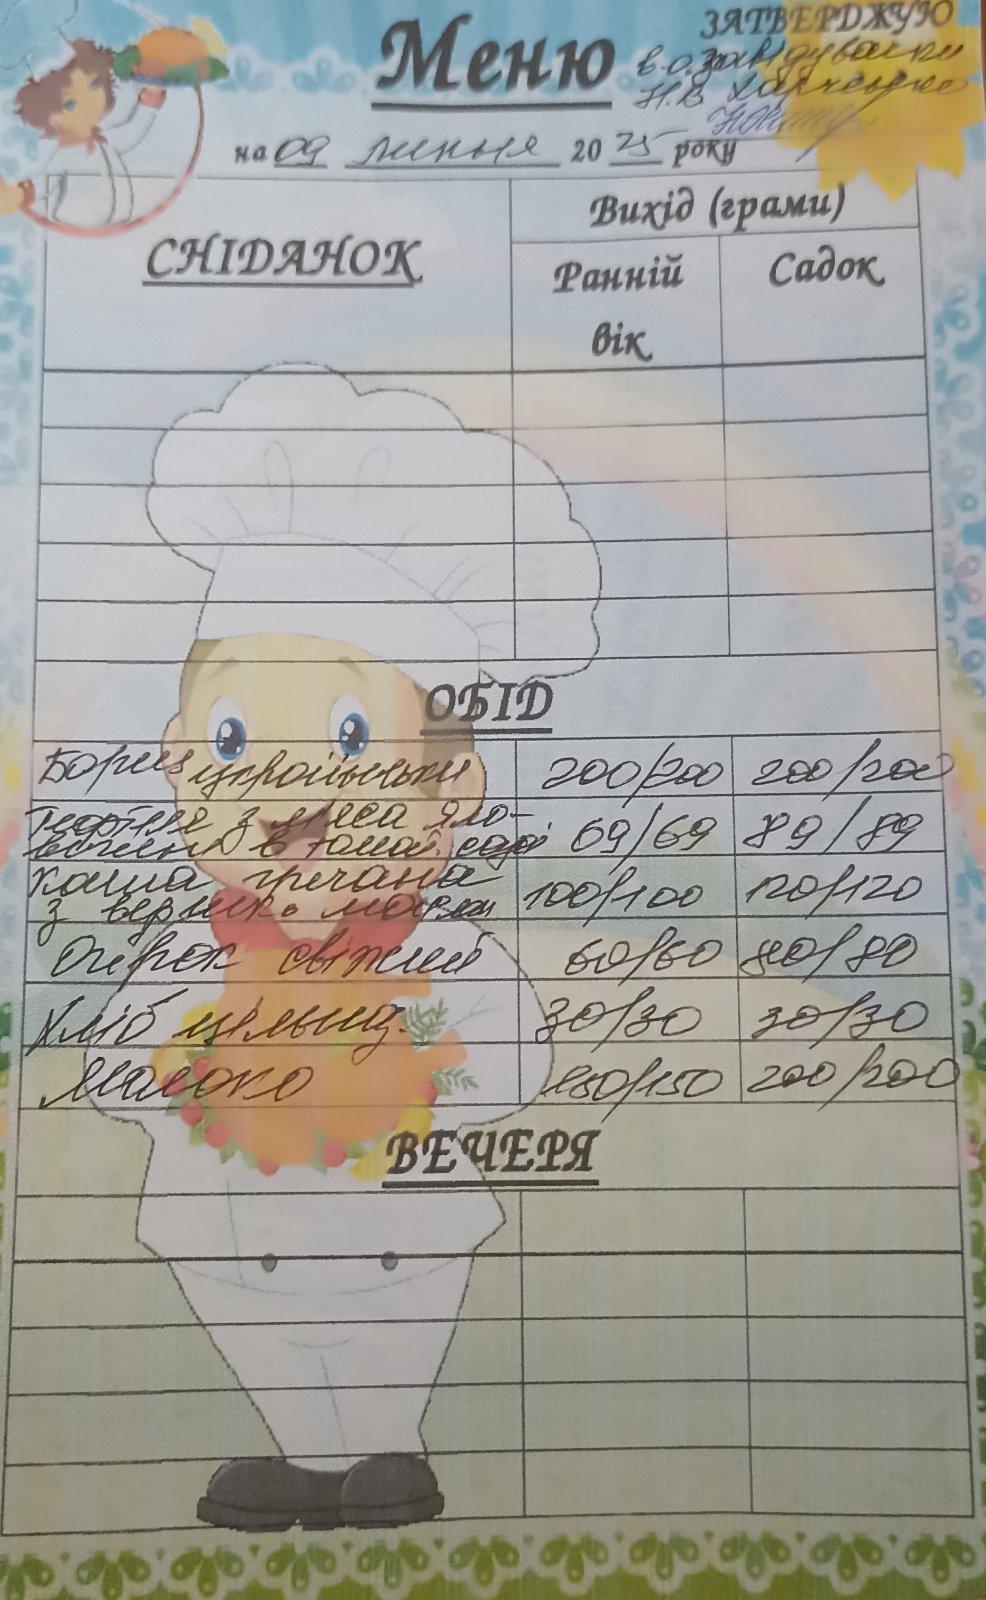 Меню
ЗАТВЕРДЖУЮ
в.о. завідувачки
Н.В
на 09 липня 2025 року
СНІДАНОК
Вихід (грами)
Ранній вік
Садок
ОБІД
Борщ український 200/200 200/200
з м'яса яло-
вичини в томат. соусі 69/69 89/89
Каша гречана
з вершк. маслом 100/100 120/120
Огірок свіжий 60/60 80/80
Хліб цільнз. 30/30 30/30
Молоко 150/150 200/200
ВЕЧЕРЯ